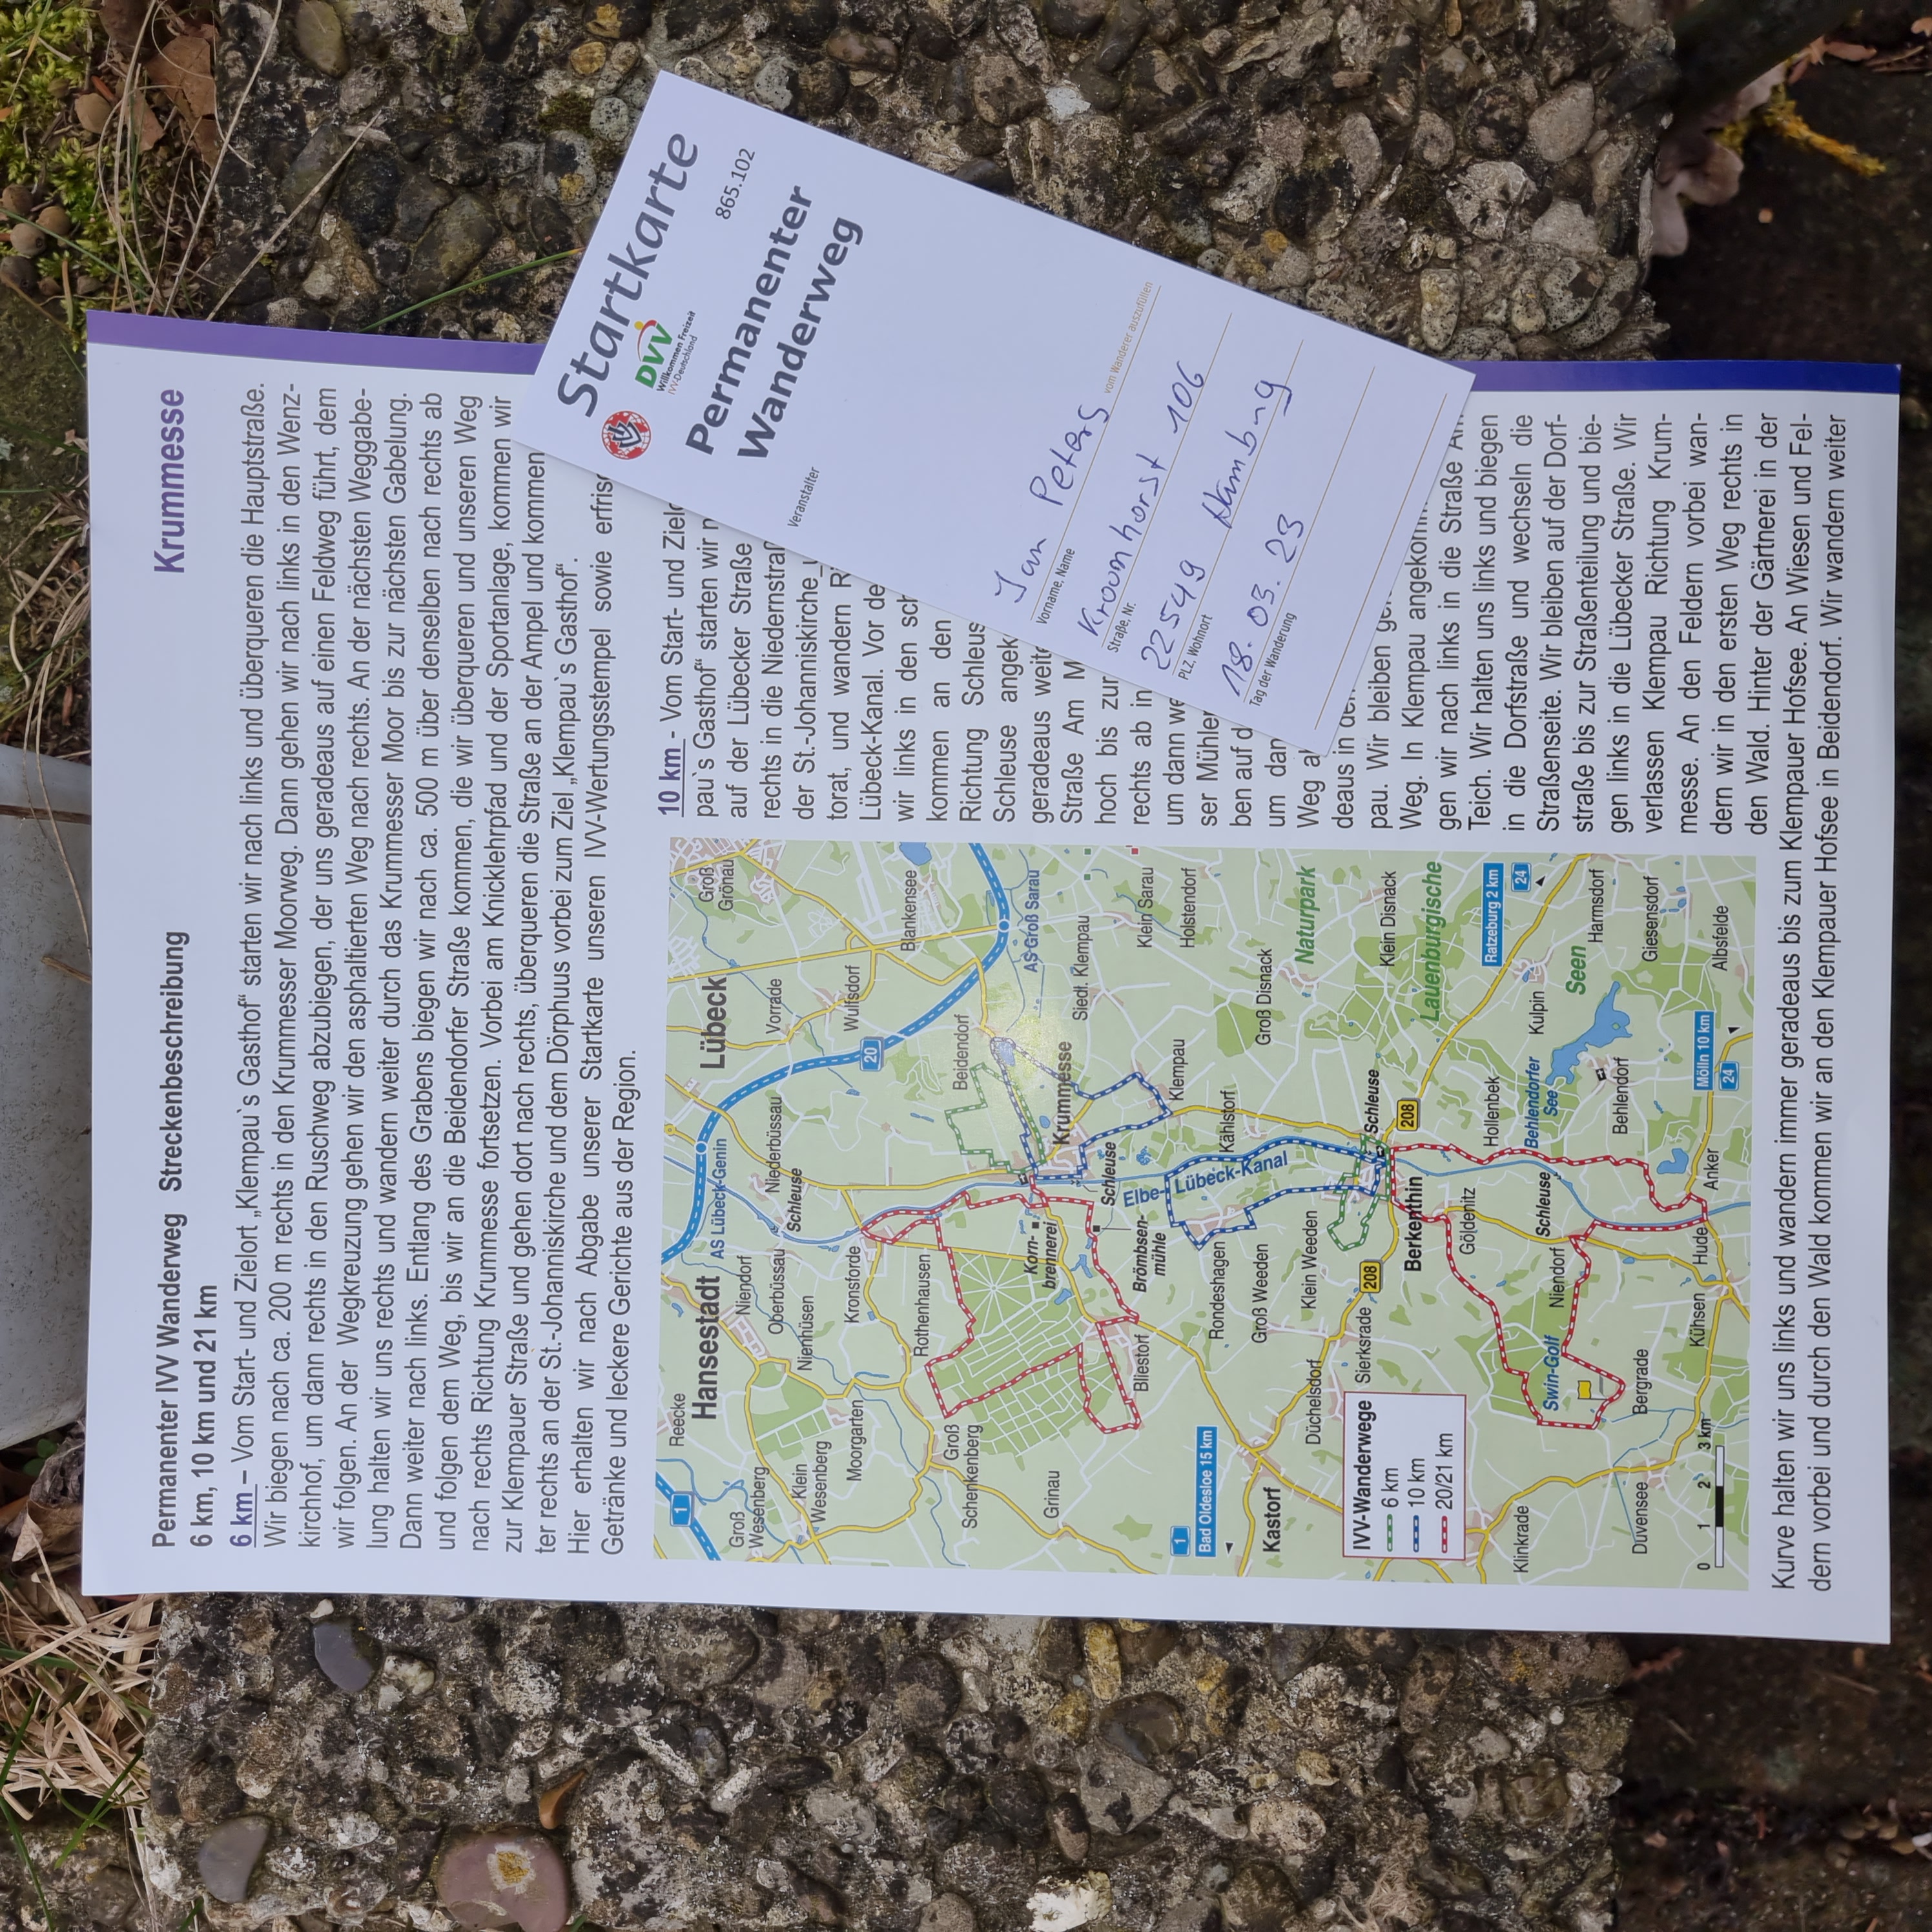 Krummesse
Permanenter IVV Wanderweg Streckenbeschreibung
6 km, 10 km und 21 km
6 km – Vom Start- und Zielort „Klempau`s Gasthof“ starten wir nach links und überqueren die Hauptstraße.
Wir biegen nach ca. 200 m rechts in den Krummesser Moorweg. Dann gehen wir nach links in den Wenz-
kirchhof, um dann rechts in den Ruschweg abzubiegen, der uns geradeaus auf einen Feldweg führt, dem
wir folgen. An der Wegkreuzung gehen wir den asphaltierten Weg nach rechts. An der nächsten Weggabe-
lung halten wir uns rechts und wandern weiter durch das Krummesser Moor bis zur nächsten Gabelung.
Dann weiter nach links. Entlang des Grabens biegen wir nach ca. 500 m über denselben nach rechts ab
und folgen dem Weg, bis wir an die Beidendorfer Straße kommen, die wir überqueren und unseren Weg
nach rechts Richtung Krummesse fortsetzen. Vorbei am Knicklehrpfad und der Sportanlage, kommen wir
zur Klempauer Straße und gehen dort nach rechts, überqueren die Straße an der Ampel und kommen
ter rechts an der St.-Johanniskirche und dem Dörphuus vorbei zum Ziel „Klempau`s Gasthof“.
Hier erhalten wir nach Abgabe unserer Startkarte unseren IVV-Wertungsstempel sowie
Getränke und leckere Gerichte aus der Region.
10 km - Vom Start- und
pau`s Gasthof“ starten wir
auf der Lübecker Straße
rechts in die
der St.-Johanniskirche
torat, und wandern
Lübeck-Kanal. Vor
wir links in den
kommen an den
Richtung
Schleuse
geradeaus
Straße Am
hoch bis zur
rechts ab in
um dann
ser
ben auf
um
Weg
deaus in
pau. Wir bleiben
Weg. In Klempau
gen wir nach links in die Straße
Teich. Wir halten uns links und biegen
in die Dorfstraße und wechseln die
Straßenseite. Wir bleiben auf der Dorf-
straße bis zur Straßenteilung und bie-
gen links in die Lübecker Straße. Wir
verlassen Klempau Richtung Krum-
messe. An den Feldern vorbei wan-
dern wir in den ersten Weg rechts in
den Wald. Hinter der Gärtnerei in der
Kurve halten wir uns links und wandern immer geradeaus bis zum Klempauer Hofsee. An Wiesen und Fel-
dern vorbei und durch den Wald kommen wir an den Klempauer Hofsee in Beidendorf. Wir wandern weiter
Startkarte
865.102
IVV
DVV
Willkommen Freizeit
IVV-Deutschland
Permanenter
Wanderweg
Veranstalter
Jan Peters
Vorname, Name
vom Wanderer auszufüllen
Kroomhorst 106
Straße, Nr.
22549 Hamburg
PLZ, Wohnort
18.03.23
Tag der Wanderung
Reecke
Hansestadt
Lübeck
Groß
Grönau
AS Lübeck-Genin
Niendorf
Vorrade
Groß
Wesenberg
Oberbüssau
Niederbüssau
Schleuse
Nienhüsen
Klein
Wesenberg
Moorgarten
Kronsforde
Wulfsdorf
20
1
Blankensee
Rothenhausen
Beidendorf
Groß
Schenkenberg
AS Groß Sarau
Korn-
brennerei
Krummesse
Grinau
Siedl. Klempau
Schleuse
Elbe-
Lübeck-Kanal
Brömbsen-
mühle
Bliestorf
Klein Sarau
Klempau
Holstendorf
1
Bad Oldesloe 15 km
Rondeshagen
Kählstorf
Groß Weeden
Groß Disnack
Kastorf
Klein Weeden
Düchelsdorf
Naturpark
Sierksrade
208
Schleuse
Klein Disnack
Berkenthin
208
Lauenburgische
Göldenitz
Hollenbek
Ratzeburg 2 km
24
Klinkrade
Swin-Golf
Niendorf
Schleuse
Behlendorfer
See
Kulpin
Seen
Harmsdorf
Behlendorf
Giesensdorf
Duvensee
Bergrade
Kühsen
Hude
Anker
Mölln 10 km
24
Albsfelde
IVV-Wanderwege
6 km
10 km
20/21 km
0 1 2 3 km